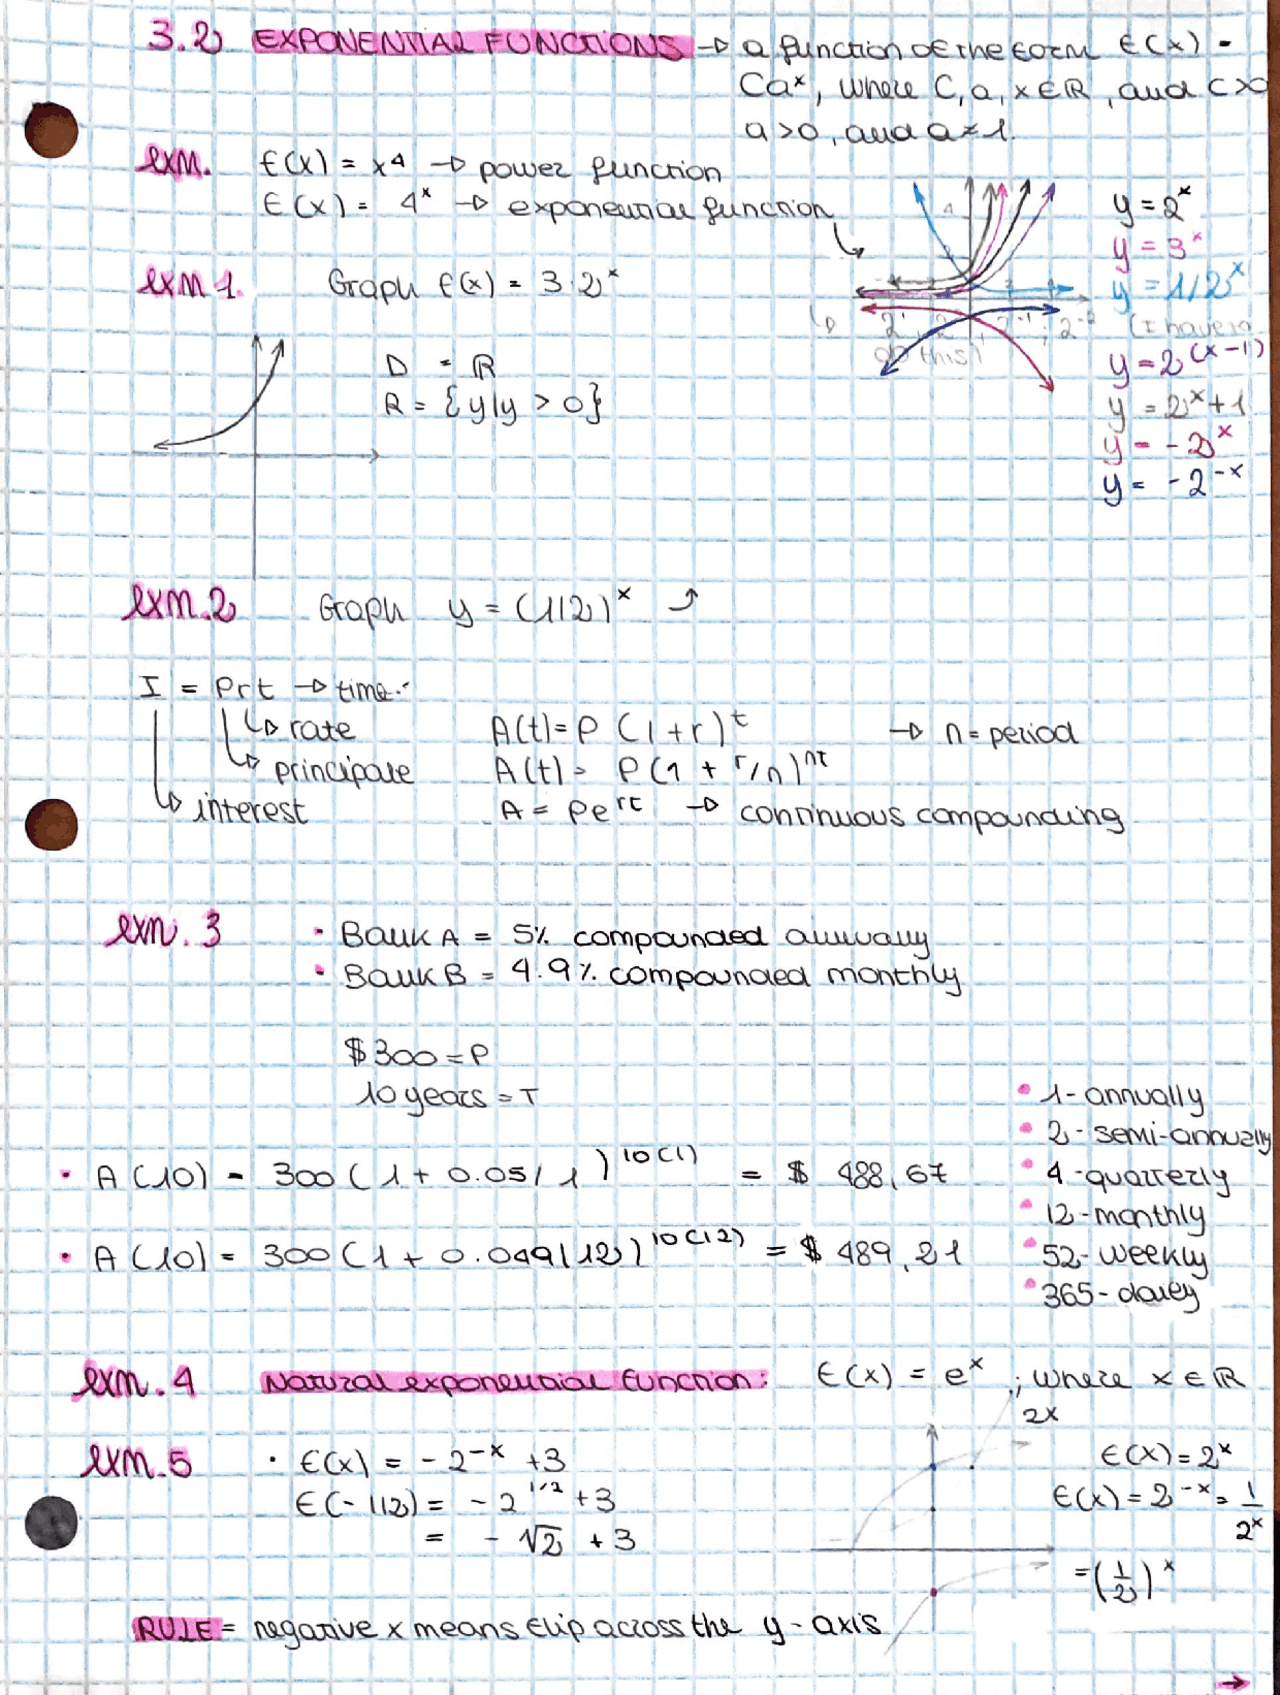 3.2) EXPONENTIAL FUNCTIONS → a function of the form f(x) =
Ca^x, where C, a, x ∈ ℝ, and C>0
a>0, and a≠1.
exm. f(x) = x^4 → power function
f(x) = 4^x → exponential function
y = 2^x
y = 3^x
y = 1/2^x
y = 2^(x-1)
y = 2^x+1
y = -2^x
y = -2^-x
exm 1. Graph f(x) = 3·2^x
D = ℝ
R = {y|y > 0}
exm.2 Graph y = (1/2)^x
I = Prt → time
rate
principate
interest
A(t) = P (1+r)^t → n = period
A(t) = P(1 + r/n)^nt
A = Pe^rt → continuous compounding
exm. 3 • Bank A = 5% compounded annually
• Bank B = 4.9% compounded monthly
$300 = P
10 years = T
• 1 - annually
• 2 - semi-annually
• 4 - quarterly
• 12 - monthly
• 52 - weekly
• 365 - daily
• A(10) = 300(1 + 0.05/1)^10(1) = $ 488,67
• A(10) = 300(1 + 0.049/12)^10(12) = $ 489,21
exm. 4 Natural exponential function: f(x) = e^x ; where x ∈ ℝ
2x
exm. 5 • f(x) = -2^-x +3
f(-1/2) = -2^1/2 +3
= -√2 + 3
f(x) = 2^x
f(x) = 2^-x = 1/2^x
= (1/2)^x
RULE = negative x means flip across the y-axis